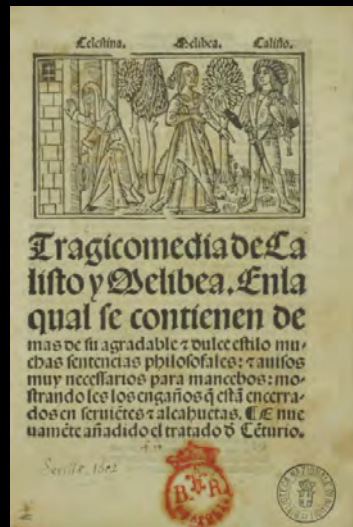 Celestina. Melibea. Calisto.
Tragicomedia de Ca
listo y Melibea. Enla
qual se contienen de
mas de su agradable ⁊ dulce estilo mu-
chas sentencias philosofales: ⁊ auisos
muy necessarios para mancebos: mo-
strando les los engaños q̃ estã encerra-
dos en seruiẽtes ⁊ alcahuetas. ¶ E nue
uamẽte añadido el tratado õ Cẽturio.
Sevilla, 1502
B. R.